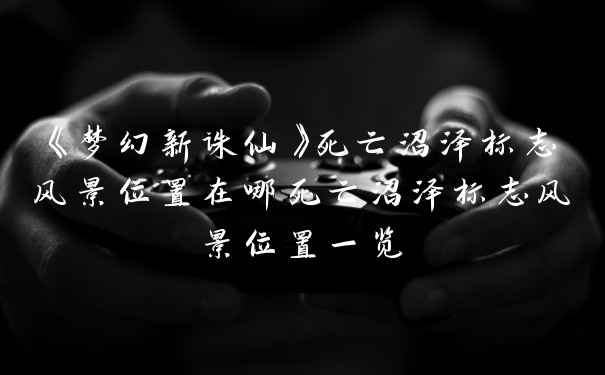 《梦幻新诛仙》死亡沼泽标志
风景位置在哪死亡沼泽标志风
景位置一览